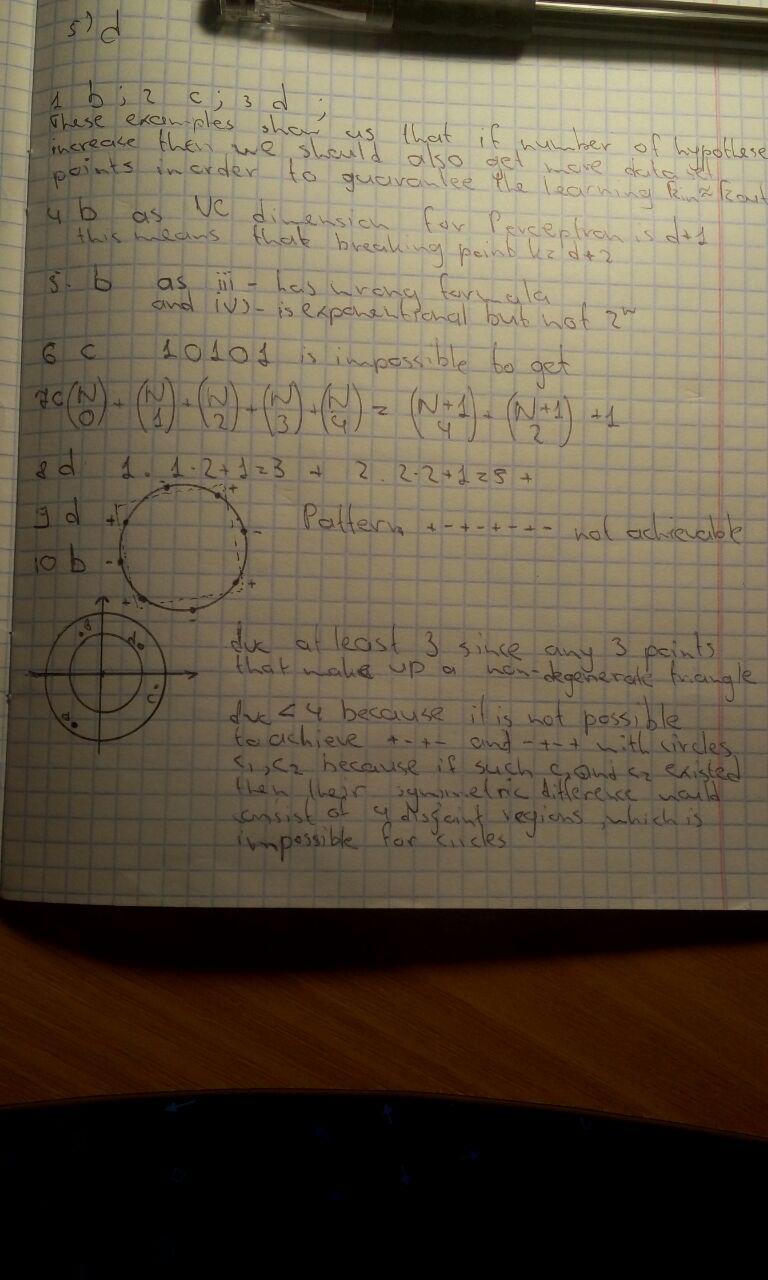 5) d
1 b; 2 c; 3 d;
These examples show us that if number of hypothese
increase then we should also get more data set
points in order to guarantee the learning Ein≈Eout
4 b as VC dimension for Perceptron is d+1
this means that breaking point k=d+2
5. b as iii - has wrong formula
and iv) - is exponentional but not 2^n
6 c 10101 is impossible to get
7c (N 0) + (N 1) + (N 2) + (N 3) + (N 4) = (N+1 4) + (N+1 2) + 1
8 d 1. 1·2+1=3 + 2. 2·2+1=5 +
9 d Pattern +-+-+-+- not achievable
10 b
+ + - + - + -
duc at least 3 since any 3 points
that make up a non-degenerate triangle
duc < 4 because it is not possible
to achieve +-+- and -+-+ with circles
c1, c2 because if such c1 and c2 existed
then their symmetric difference would
consist of 4 disjoint regions, which is
impossible for circles